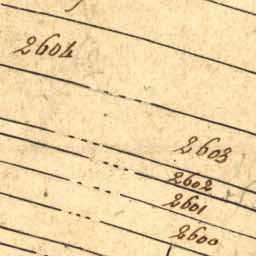 2604
2603
2602
2601
2600